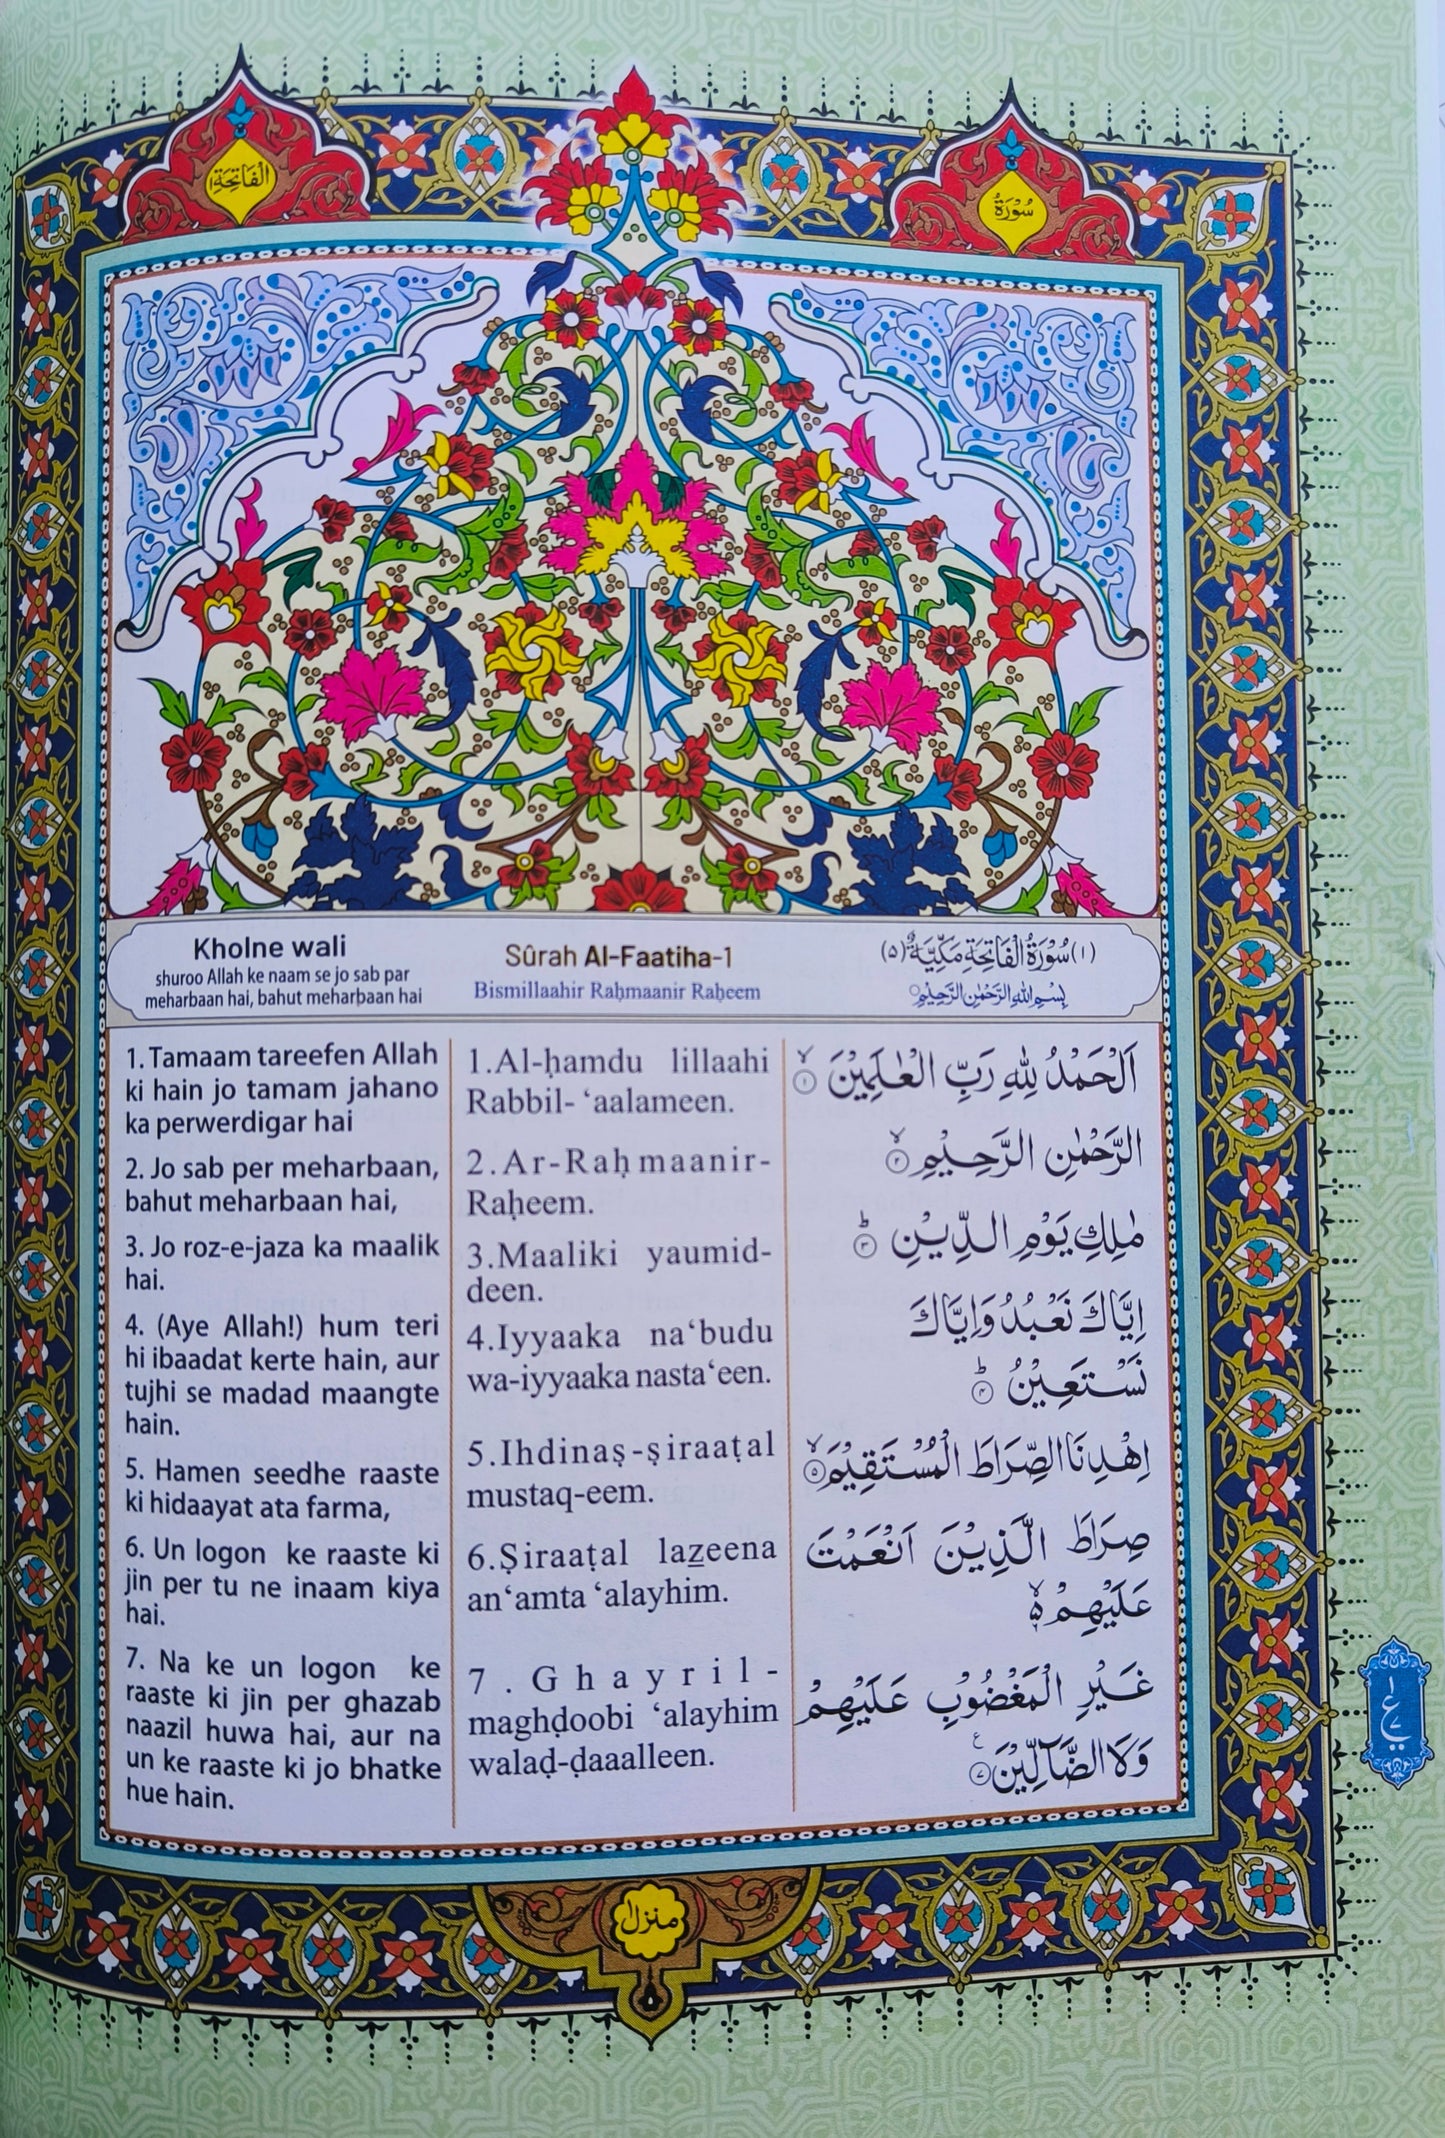 الفاتحة
سُوْرَةُ
Kholne wali
shuroo Allah ke naam se jo sab par
meharbaan hai, bahut meharbaan hai
Sûrah Al-Faatiha-1
Bismillaahir Raḥmaanir Raḥeem
(۱) سُوْرَةُ الْفَاتِحَةِ مَكِّيَّةٌ (۵)
بِسْمِ اللّٰهِ الرَّحْمٰنِ الرَّحِيْمِ
1. Tamaam tareefen Allah
ki hain jo tamam jahano
ka perwerdigar hai
2. Jo sab per meharbaan,
bahut meharbaan hai,
3. Jo roz-e-jaza ka maalik
hai.
4. (Aye Allah!) hum teri
hi ibaadat kerte hain, aur
tujhi se madad maangte
hain.
5. Hamen seedhe raaste
ki hidaayat ata farma,
6. Un logon ke raaste ki
jin per tu ne inaam kiya
hai.
7. Na ke un logon ke
raaste ki jin per ghazab
naazil huwa hai, aur na
un ke raaste ki jo bhatke
hue hain.
1.Al-ḥamdu lillaahi
Rabbil- ‘aalameen.
2.Ar-Raḥmaanir-
Raḥeem.
3.Maaliki yaumid-
deen.
4.Iyyaaka na‘budu
wa-iyyaaka nasta‘een.
5.Ihdinaṣ-ṣiraaṭal
mustaq-eem.
6.Ṣiraaṭal lazeena
an‘amta ‘alayhim.
7.Ghayril-
maghḍoobi ‘alayhim
walaḍ-ḍaaalleen.
اَلْحَمْدُ لِلّٰهِ رَبِّ الْعٰلَمِيْنَ ۙ‏ ۱
الرَّحْمٰنِ الرَّحِيْمِ ۙ‏ ۲
مٰلِكِ يَوْمِ الدِّيْنِ ؕ‏ ۳
اِيَّاكَ نَعْبُدُ وَاِيَّاكَ
نَسْتَعِيْنُ ؕ‏ ۴
اِهْدِنَا الصِّرَاطَ الْمُسْتَقِيْمَ ۙ‏ ۵
صِرَاطَ الَّذِيْنَ اَنْعَمْتَ
عَلَيْهِمْ ۙ۬ ۶
غَيْرِ الْمَغْضُوْبِ عَلَيْهِمْ
وَلَا الضَّآلِّيْنَ ۷ ع
۱
ع
۷
منزل